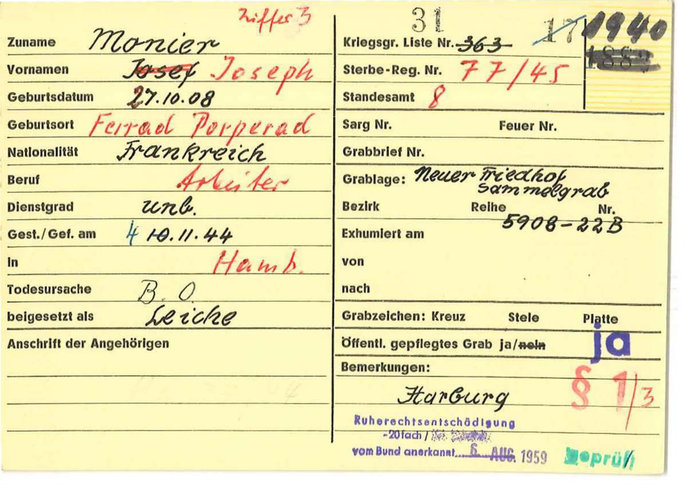 Ziffer 3
31
17
1940
1882
Zuname Monier
Vornamen Josef Joseph
Geburtsdatum 27.10.08
Geburtsort Ferrad Porperad
Nationalität Frankreich
Beruf Arbeiter
Dienstgrad unb.
Gest./Gef. am 4 10.11.44
in Hamb.
Todesursache B.O.
beigesetzt als Leiche
Anschrift der Angehörigen
Kriegsgr. Liste Nr. 363
Sterbe-Reg. Nr. 77/45
Standesamt 8
Sarg Nr. Feuer Nr.
Grabbrief Nr.
Grablage: Neuer Friedhof
Sammelgrab
Bezirk Reihe Nr.
5908-22B
Exhumiert am
von
nach
Grabzeichen: Kreuz Stele Platte
Öffentl. gepflegtes Grab ja/nein ja
Bemerkungen: § 1/3
Harburg
Ruherechtsentschädigung
-20fach/
vom Bund anerkannt 6. AUG. 1959
geprüft